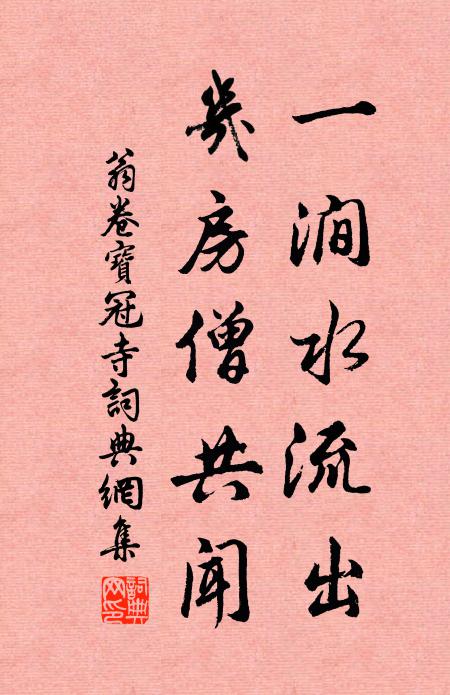 一澗水流出
幾房僧共聞
翁卷寶冠寺詞典網集
詞典網印